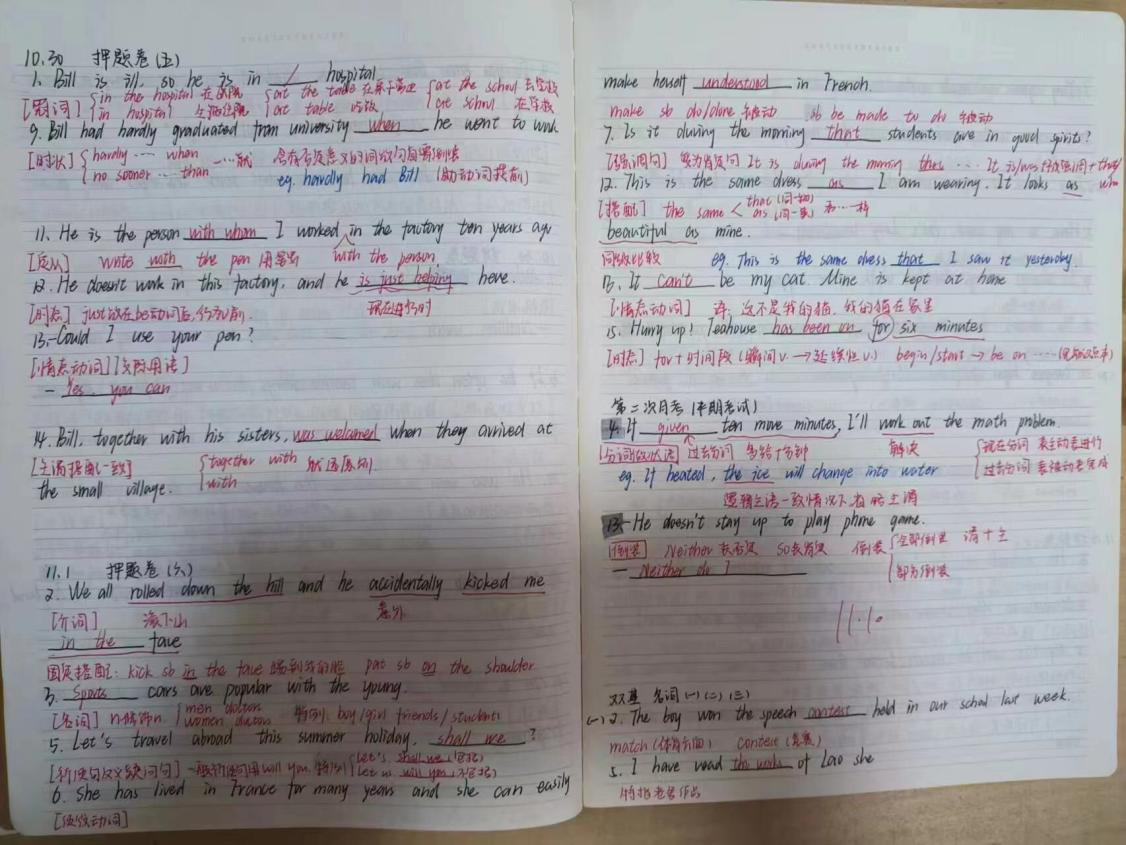 10.30 押题卷(五)
1. Bill is ill, so he is in / hospital
[冠词] in the hospital 在医院 at the table 在桌子旁边 at the school 去学校
in hospital 生病住院 at table 吃饭 at school 在学校
9. Bill had hardly graduated from university when he went to work
[时状] hardly ···· when ····就
no sooner ··· than eg. hardly had Bill (助动词提前)
11. He is the person with whom I worked in the factory ten years ago
[定从] write with the pen 用笔写 with the person.
12. He doesn't work in this factory, and he is just helping here.
[时态] just 放在be动词后, 行为v前. 现在进行时
13.-Could I use your pen?
[情态动词][交际用语]
- Yes, you can
14. Bill, together with his sisters, was welcomed when they arrived at
[主谓搭配一致] together with 就远原则
with
the small village.
11.1 押题卷(六)
2. We all rolled down the hill and he accidentally kicked me
[介词] 滚下山 意外
in the face
固定搭配: kick sb in the face 踢到我的脸 pat sb on the shoulder
3. Sports cars are popular with the young.
[名词] n.修饰n. men doctors
women doctors 特例: boy/girl friends/students
5. Let's travel abroad this summer holiday, shall we ?
[祈使句反义疑问句] 一般祈使句用will you. 特例 Let's, shall we (包括)
Let us, will you (不包括)
6. She has lived in France for many years and she can easily
[使役动词]
make herself understood in French.
make sb do/done 被动 sb be made to do 被动
7. Is it during the morning that students are in good spirits?
[强调句] 变为肯定句 It is during the morning that ···· It is/was+被强调+that/
who
12. This is the same dress as I am wearing. It looks as
[搭配] the same < that (同一物)
as (同一类) 和···一样
beautiful as mine.
同级比较 eg. This is the same dress that I saw it yesterday
13. It can't be my cat. Mine is kept at home
[情态动词] 译: 这不是我的猫, 我的猫在家里
15. Hurry up! Teahouse has been on for six minutes
[时态] for+时间段 (瞬间v. → 延续性v.) begin/start → be on
第二次月考 (半期考试)
4. If given ten more minutes, I'll work out the math problem.
[分词做状语] 过去分词 多给十分钟 解决 现在分词 表主动表进行
过去分词 表被动表完成
eg. If heated, the ice will change into water
逻辑主语一致情况下省略主谓
13.-He doesn't stay up to play phone game.
[倒装] Neither 表否定 so表肯定 倒装 全部倒装 谓+主
部分倒装
- Neither do I
11.10
双基 名词(一)(二)(三)
(一) 2. The boy won the speech contest held in our school last week.
match (体育方面) contest (竞赛)
5. I have read the works of Lao she
特指老舍作品